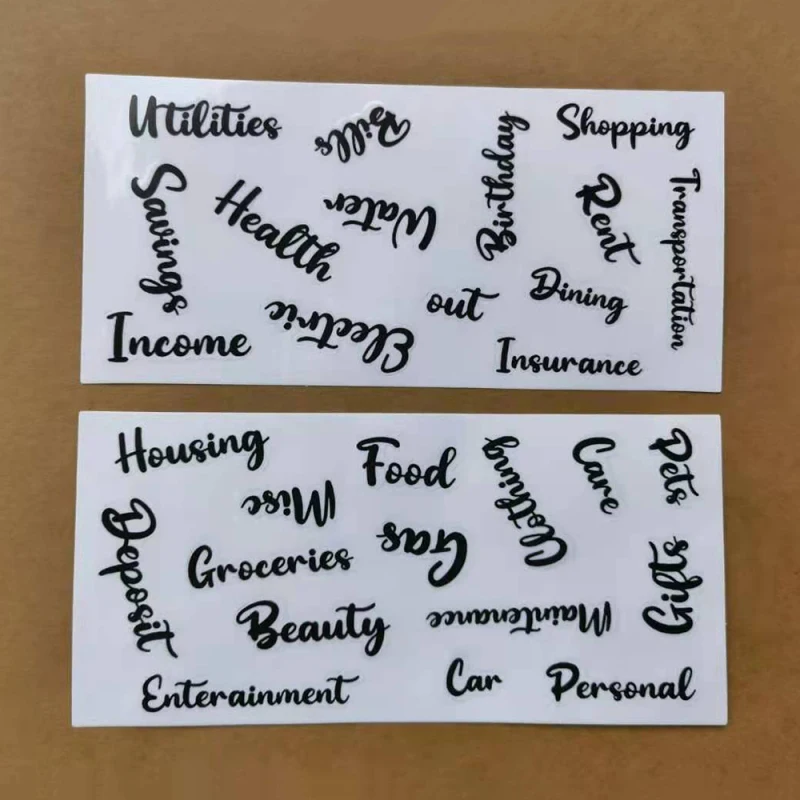 Utilities
Bills
Birthday
Shopping
Savings
Health
Water
Rent
Transportation
Income
Electric
out
Dining
Insurance
Housing
Food
Clothing
Care
Pets
Misc
Deposit
Groceries
Gas
Gifts
Beauty
Maintenance
Enterainment
Car
Personal